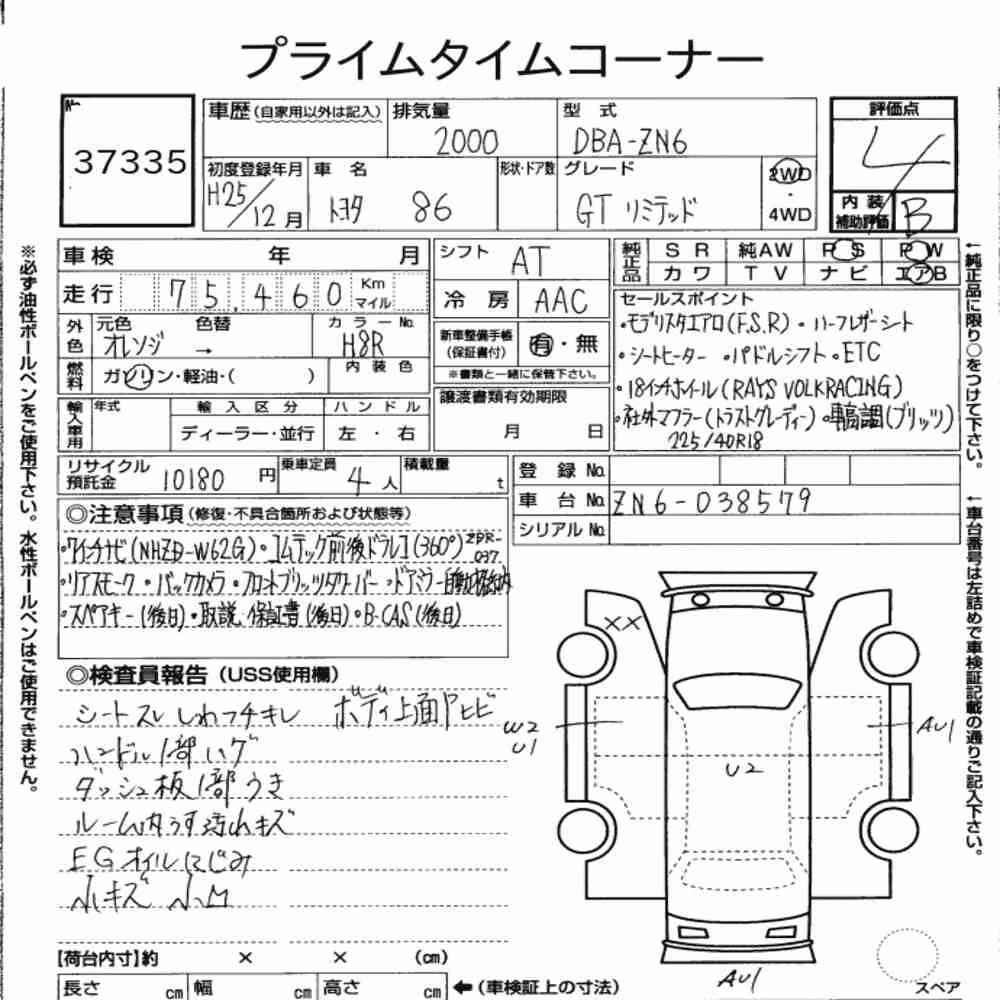 プライムタイムコーナー
37335
車歴(自家用以外は記入) 排気量 型式
2000 DBA-ZN6
初度登録年月 車名 形状・ドア数 グレード
H25/12月 トヨタ 86 GT リミテッド
2WD・4WD
評価点
4
内装補助評価 B
車検 年 月
走行 75,460 Km マイル
外色 元色 色替 カラーNo.
オレンジ → H8R
燃料 ガソリン・軽油・( ) 内装色
輸入車用 年式 輸入区分 ハンドル
ディーラー・並行 左・右
シフト AT
冷房 AAC
新車整備手帳(保証書付) 有・無
※書類と一緒に保管下さい。
譲渡書類有効期限
月 日
純正品 SR 純AW PS PW
カワ TV ナビ エアB
セールスポイント
・モデリスタエアロ(F.S.R)・ハーフレザーシート
・シートヒーター ・パドルシフト・ETC
・18インチホイール(RAYS VOLKRACING)
・社外マフラー(トラストグレディー)・車高調(ブリッツ)
225/40R18
リサイクル預託金 10180円 乗車定員 4人 積載量 t
登録No.
車台No. ZN6-038579
シリアルNo.
◎注意事項(修復・不具合箇所および状態等)
・ワイドナビ(NHZD-W62G)・コムテック前後ドラレコ(360°) ZDR-037
・リアスモーク・バックカメラ・フロントブリッツタワーバー・ドアミラー自動格納
・スペアキー(後日)・取説、保証書(後日)・B-CAS(後日)
◎検査員報告(USS使用欄)
シートスレ しわ フチキレ ボディ上面ヤヒビ
ハンドル1部ハゲ
ダッシュ板1部うき
ルーム内うす汚れキズ
EGオイルにじみ
小キズ 小凹
【荷台内寸】約 × × (cm)
長さ cm 幅 cm 高さ cm ←(車検証上の寸法)
XX
W2
U1
U2
AU1
AU1
スペア
※必ず油性ボールペンをご使用下さい。水性ボールペンはご使用できません。
←純正品に限り○をつけて下さい。
←車台番号は左詰めで車検証記載の通りご記入下さい。